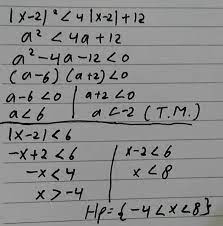 |x-2|² < 4|x-2|+12
a² < 4a+12
a²-4a-12<0
(a-6)(a+2)<0
a-6<0 | a+2<0
a<6 | a<-2 (T.M.)
|x-2|<6
-x+2<6 | x-2<6
-x<4 | x<8
x>-4
Hp={-4<x<8}